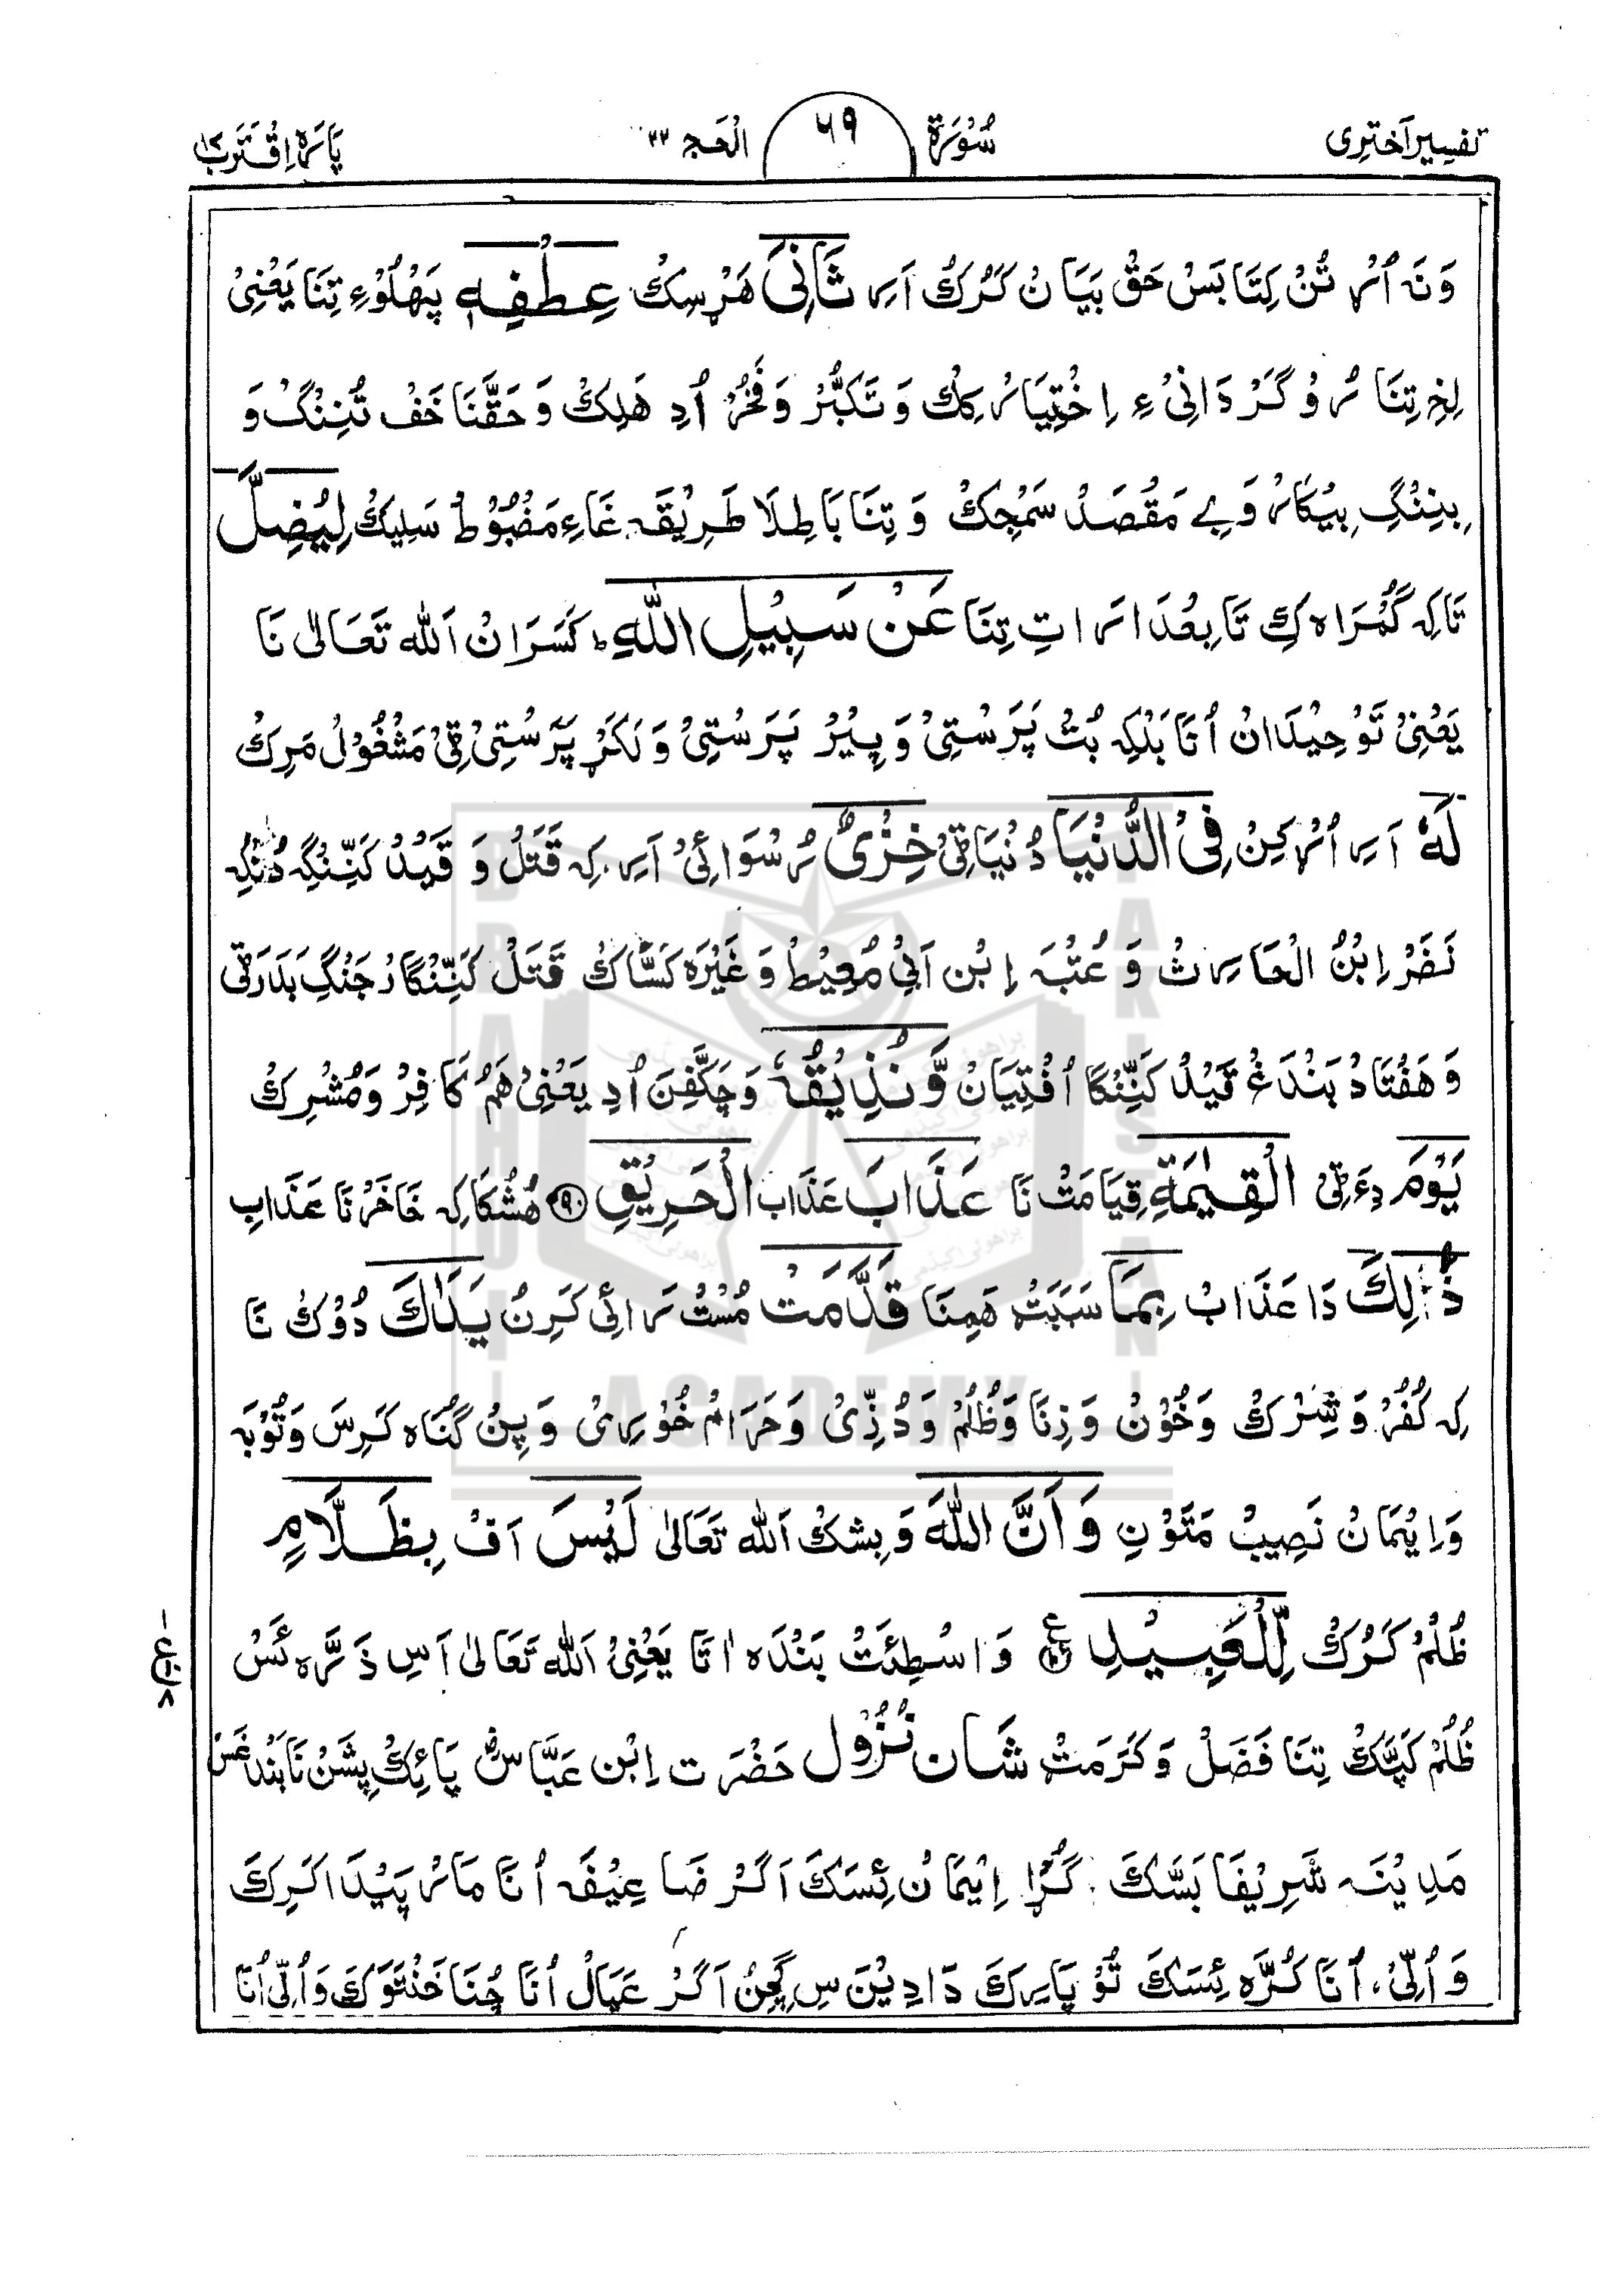 تفسیر آختری سُوْرَۃ ٦٩ الْحَج ٢٢ پَارَہ اِقْتَرَبَ ١٧
وَنَہ اُرْ تُنْ کِتَابَسْ حَقْ بَیَانْ کَرُکْ اَرِ ثَانِیَ ھَرْسِکْ عِطْفِہٖ پَہْلُوْءِ تِنَا یَعْنِیْ
لِخِ تِنَا رُوْ گَرْدَانِیْ ءِ اِخْتِیَارْ کِکْ وَ تَکَبُّرْ وَ فَخْرْ اُدِ ھَلِکْ وَ حَقَّنَا خَفْ تُنِنْگْ وَ
بِنِنْگِ بِیْکَارْ وَ بے مَقْصَدْ سَمْجِکْ وَ تِنَا بَاطِلَا طَرِیْقَہ غَاءِ مَضْبُوْطْ سَلِیکْ لِیُضِلَّ
تَاکِہ گُمْرَاہ کِ تَابِعْدَارَ اتِ تِنَا عَنْ سَبِیْلِ اللّٰہِ ؕ کَسَرَانْ اَللّٰہ تَعَالٰی نَا
یَعْنِیْ تَوْحِیْدَانْ اُنَا بَلْکِہ بُتْ پَرَسْتِیْ وَ پِیْرْ پَرَسْتِیْ وَ لَکَرْ پَرَسْتِیْ ٹِیْ مَشْغُوْلْ مَرِکْ
لَہٗ اَرِ اُرْکِنْ فِی الدُّنْیَا دُنْیَا ٹِیْ خِزْیٌ رُسْوَائِیْ اَرِ کِہ قَتَلْ وَ قَیْدْ کَنِّنْگِہ دُنْکِہ
نَضَرْ اِبْنُ الْحَارِثْ وَ عُتْبَہ اِبْنِ اَبِیْ مُعِیْطْ وَ غَیْرَہ کَسَّاکْ قَتَلْ کَنِّنْگَارْ جَنْگِ بَدَرَٹِیْ
وَ ھَفْتَادْ بَنْدَغْ قَیْدْ کَنِّنْگَا اُفْتِیَانْ وَّنُذِیْقُہٗ وَ چَکَّفِنَ اُدِ یَعْنِیْ ھَمْ کَافِرْ وَ مُشْرِکْ
یَوْمَ دِءَ ٹِیْ الْقِیٰمَۃِ قِیَامَتْ نَا عَذَابَ عَذَاب الْحَرِیْقِ ﴿٩﴾ ھُشُکَا کِہ خَاخَرْ نَا عَذَابِ
ذٰلِکَ دَا عَذَابْ بِمَا سَبَبَتْ ھَمِنَا قَدَّمَتْ مُسْتْ رَائِی کَرِنْ یَدٰکَ دُوْکْ نَا
کِہ کُفْرْ وَ شِرْکْ وَ خُوْنْ وَ زِنَا وَ ظُلُمْ وَ دُذِّیْ وَ حَرَامْ خُوْرِیْ وَ پِنْ گُنَاہ کَرِسَ وَ تُوْبَہ
وَ اِیْمَانْ نَصِیبْ مَتَوْنِ وَ اَنَّ اللّٰہَ وَ بِشِکْ اَللّٰہ تَعَالٰی لَیْسَ اَفْ بِظَلَّامٍ
ظُلُمْ کَرُکْ لِّلْعَبِیْدِ ﴿١٠﴾ ع وَاسْطِئَتْ بَنْدَہ اتَا یَعْنِیْ اَللّٰہ تَعَالٰی اَسِ ذَرَّہ ئَسْ
ظُلُمْ کَپَّکْ تِنَا فَضَلْ وَ کَرَمَتْ شَانِ نُزُوْل حَضْرَت اِبْنِ عَبَّاسْ پَائِکْ پِشَنْ نَا بَنْدَغَسْ
مَدِیْنَہ شَرِیْفَا بَسَّکَ کُرَّا اِیْمَانْ ئِسَکَ اَگَرْ ضَاعِیْفَہ اُنَا مَارْ پَیْدَا کَرِکَ
وَ اُلِّیْ، اُنَا کُرَّہ ئِسَکَ تُوْ پَارِکَ دَا دِیْنَ سِ جِوَنْ اَگَرْ عَیَالْ اُنَا چُنَا خَنْتَوَکَ وَ اُلِّیْ اُنَا